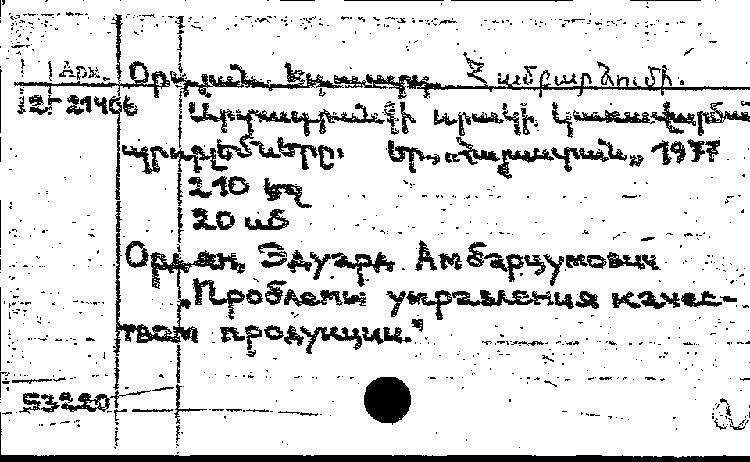 Арх. Օրդյան, Էդուարդ Համբարձումի.
2I- 21406 Արտադրանքի որակի կառավարման
պրոբլեմները։ Եր., «Հայաստան», 1977
210 էջ
20 սմ
Ордян, Эдуард Амбарцумович
„Проблемы управления качес-
твом продукции."
53220
a